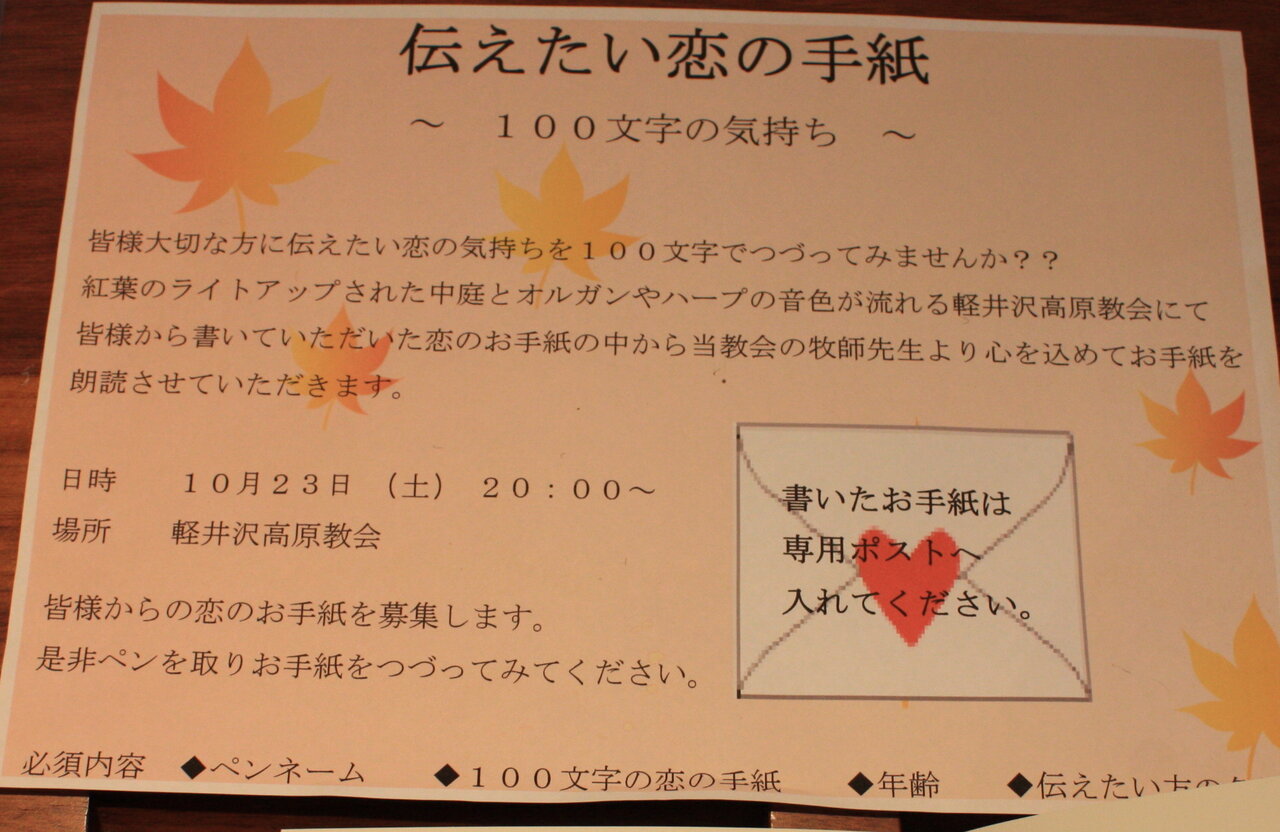 伝えたい恋の手紙
～　１００文字の気持ち　～
皆様大切な方に伝えたい恋の気持ちを１００文字でつづってみませんか？？
紅葉のライトアップされた中庭とオルガンやハープの音色が流れる軽井沢高原教会にて
皆様から書いていただいた恋のお手紙の中から当教会の牧師先生より心を込めてお手紙を
朗読させていただきます。
日時　　１０月２３日　（土）　２０：００～
場所　　軽井沢高原教会
書いたお手紙は
専用ポストへ
入れてください。
皆様からの恋のお手紙を募集します。
是非ペンを取りお手紙をつづってみてください。
必須内容　◆ペンネーム　　◆１００文字の恋の手紙　　◆年齢　　◆伝えたい方の